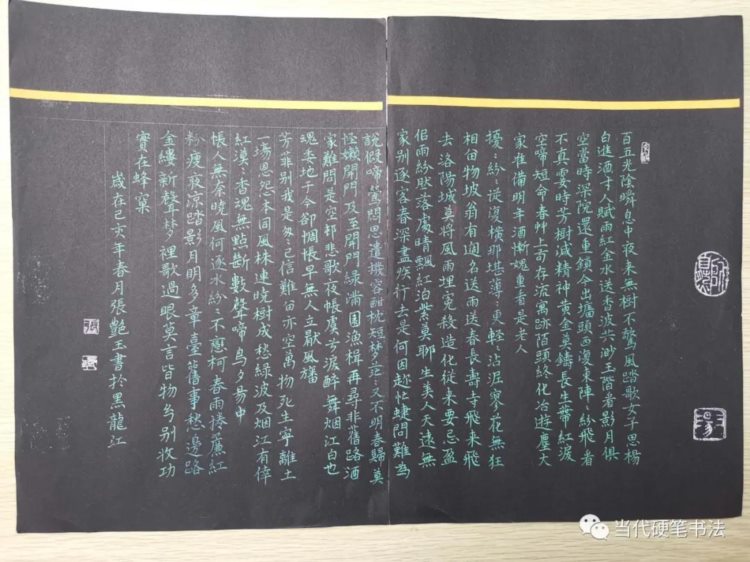 百五光陰瞬息中夜來無樹不驚風踏歌女子思楊
白進酒才人賦雨紅金水送香波共渺玉階看影月俱
空當時深院還重鎖今出墻頭西復東陣〻紛飛看
不真霎時芳樹減精神黃金莫鑄長生蒂紅淚
空啼短命春艸上苟存流寓跡陌頭終化冶遊塵大
家准備明年酒慚愧重看是老人
擾〻紛〻從復橫那堪薄〻更輕沾泥寥花無狂
相田物坡翁有過名送雨送春長壽寺飛來飛
去洛陽城莫將風雨埋冤殺造化從來要忌盈
侶雨紛然落處晴飄紅泊紫莫聊生美人天遠無
家別逐客春深盡族行去是何因趁忙蜨問難為
說假啼鶯悶思遣撥容酣枕短夢茫〻又不明春歸莫
怪嬾開門及至開門綠滿園漁楫再尋非舊路酒
家難問是空邨悲歌夜帳虞兮淚醉舞烟江白也
魂委地于今卻惆悵早無人立厭風旛
芳菲別我是匆〻已信難留亦空萬物死生寧離土
一場恩怨本同風株連曉樹成愁綠波及烟江有倖
紅漠〻香魂無點斷數聲啼鳥夕昜中
悵人無奈曉風何逐水紛〻不戀柯春雨捲簾紅
粉瘦夜涼踏影月明多章臺舊事愁邊路
金縷新聲夢裡歌過眼莫言皆物兮別收功
實在蜂窠
歲在己亥年春月張艷玉書於黑龍江
当代硬笔书法